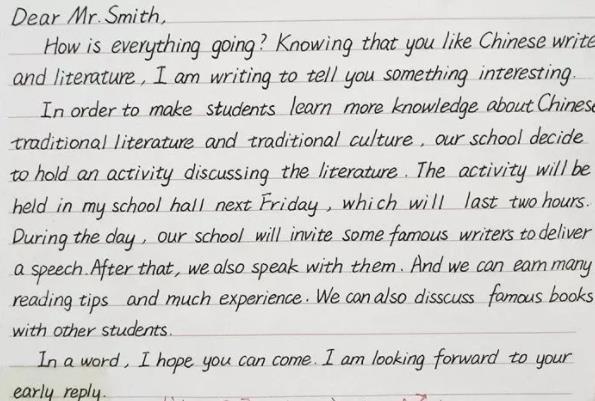 Dear Mr. Smith,
How is everything going? Knowing that you like Chinese write
and literature, I am writing to tell you something interesting.
In order to make students learn more knowledge about Chinese
traditional literature and traditional culture, our school decide
to hold an activity discussing the literature. The activity will be
held in my school hall next Friday, which will last two hours.
During the day, our school will invite some famous writers to deliver
a speech. After that, we also speak with them. And we can earn many
reading tips and much experience. We can also disscuss famous books
with other students.
In a word, I hope you can come. I am looking forward to your
early reply.